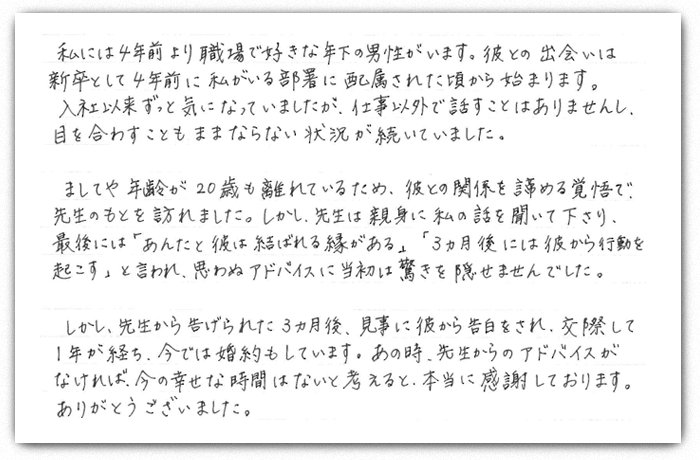 私には4年前より職場で好きな年下の男性がいます。彼との出会いは
新卒として4年前に私がいる部署に配属された頃から始まります。
入社以来ずっと気になっていましたが、仕事以外で話すことはありませんし、
目を合わすこともままならない状況が続いていました。
ましてや年齢が20歳も離れているため、彼との関係を諦める覚悟で、
先生のもとを訪れました。しかし、先生は親身に私の話を聞いて下さり、
最後には「あんたと彼は結ばれる縁がある」「3ヵ月後には彼から行動を
起こす」と言われ、思わぬアドバイスに当初は驚きを隠せませんでした。
しかし、先生から告げられた3ヵ月後、見事に彼から告白をされ、交際して
1年が経ち、今では婚約もしています。あの時、先生からのアドバイスが
なければ、今の幸せな時間はないと考えると、本当に感謝しております。
ありがとうございました。